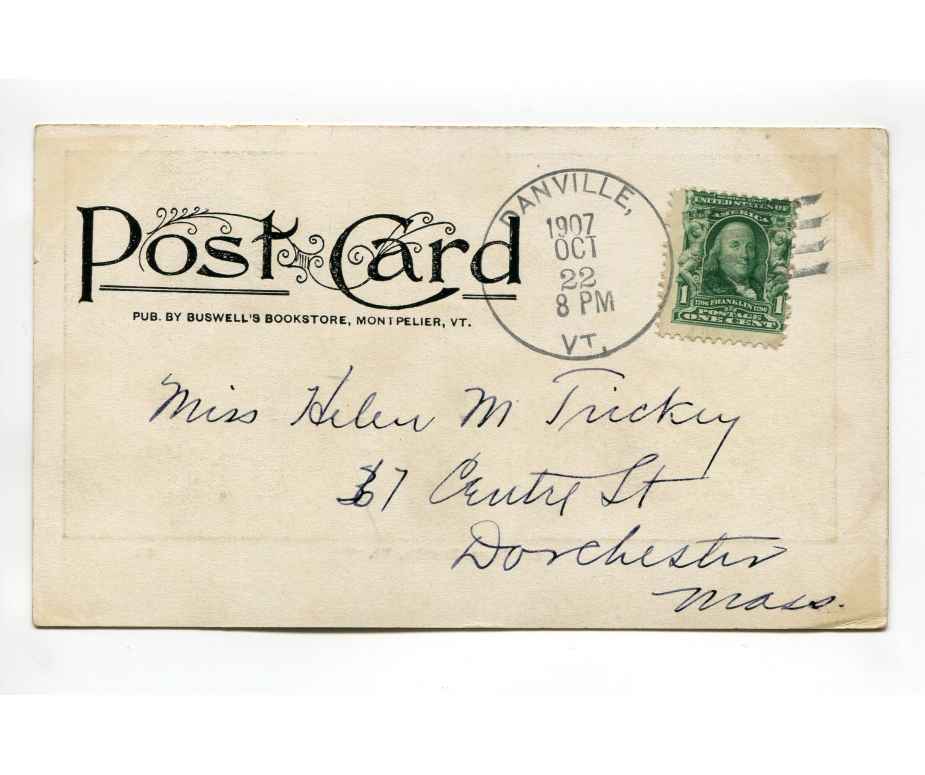 Post Card
PUB. BY BUSWELL'S BOOKSTORE, MONTPELIER, VT.
DANVILLE,
1907
OCT
22
8 PM
VT.
UNITED STATES OF
AMERICA
1 FRANKLIN 1
POSTAGE
ONE CENT
Miss Helen M Trickey
37 Centre St
Dorchester
Mass.